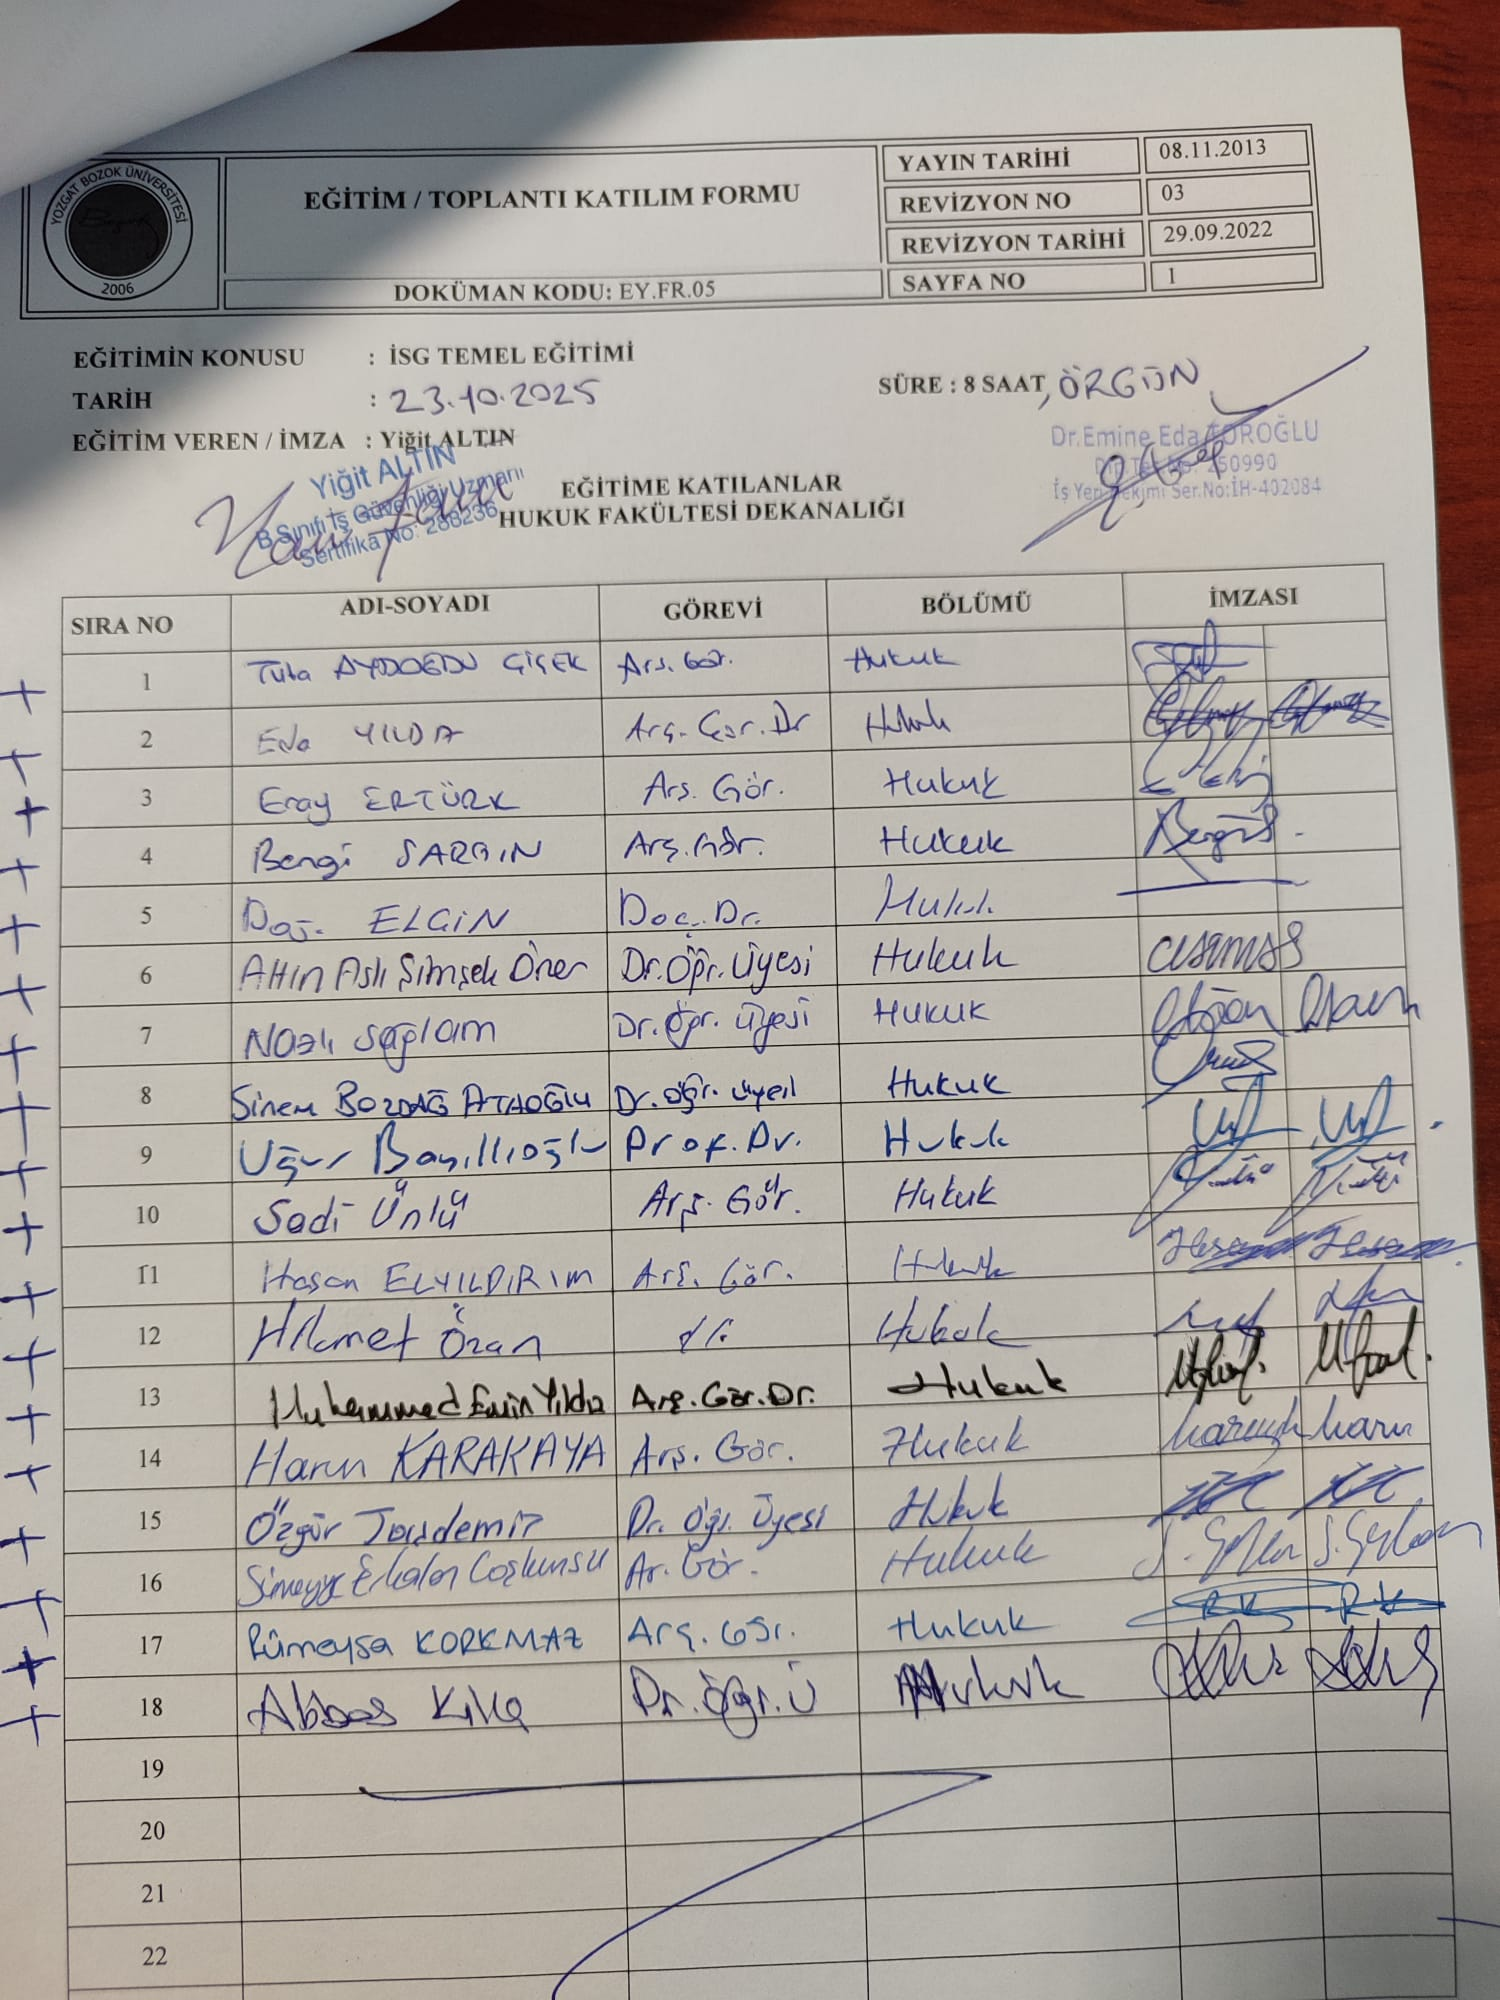 YOZGAT BOZOK ÜNİVERSİTESİ
2006
EĞİTİM / TOPLANTI KATILIM FORMU
DOKÜMAN KODU: EY.FR.05
YAYIN TARİHİ 08.11.2013
REVİZYON NO 03
REVİZYON TARİHİ 29.09.2022
SAYFA NO 1
EĞİTİMİN KONUSU : İSG TEMEL EĞİTİMİ
TARİH : 23.10.2025
SÜRE : 8 SAAT, ÖRGÜN
EĞİTİM VEREN / İMZA : Yiğit ALTIN
Yiğit ALTIN
B Sınıfı İş Güvenliği Uzmanı
Sertifika No: 288236
Dr. Emine Eda
250990
İş Yeri Hekimi Ser.No:İH-402084
EĞİTİME KATILANLAR
HUKUK FAKÜLTESİ DEKANALIĞI
SIRA NO ADI-SOYADI GÖREVİ BÖLÜMÜ İMZASI
1 Tuba AYDOĞDU ÇİÇEK Arş. Gör. Hukuk
2 Eda YILDA Arş. Gör. Dr Hukuk
3 Eray ERTÜRK Arş. Gör. Hukuk
4 Bengi SARGIN Arş. Gör. Hukuk
5 ELGİN Doç. Dr. Hukuk
6 Altın Aslı Şimşek Öner Dr. Öğr. Üyesi Hukuk
7 Nazlı Sağlam Dr. Öğr. Üyesi Hukuk
8 Sinem BOZDAĞ Dr. Öğr. Üyesi Hukuk
9 Uğur Prof. Dr. Hukuk
10 Sadi Ünlü Arş. Gör. Hukuk
11 Hasan ELYILDIRIM Arş. Gör. Hukuk
12 Hikmet Özan Hukuk
13 Muhammed Emin Yıldız Arş. Gör. Dr. Hukuk
14 Harun KARAKAYA Arş. Gör. Hukuk
15 Özgür Taşdemir Dr. Öğr. Üyesi Hukuk
16 Ar. Gör. Hukuk
17 Rümeysa KORKMAZ Arş. Gör. Hukuk
18 Abbas Kılıç Dr. Öğr. Ü Hukuk
19
20
21
22